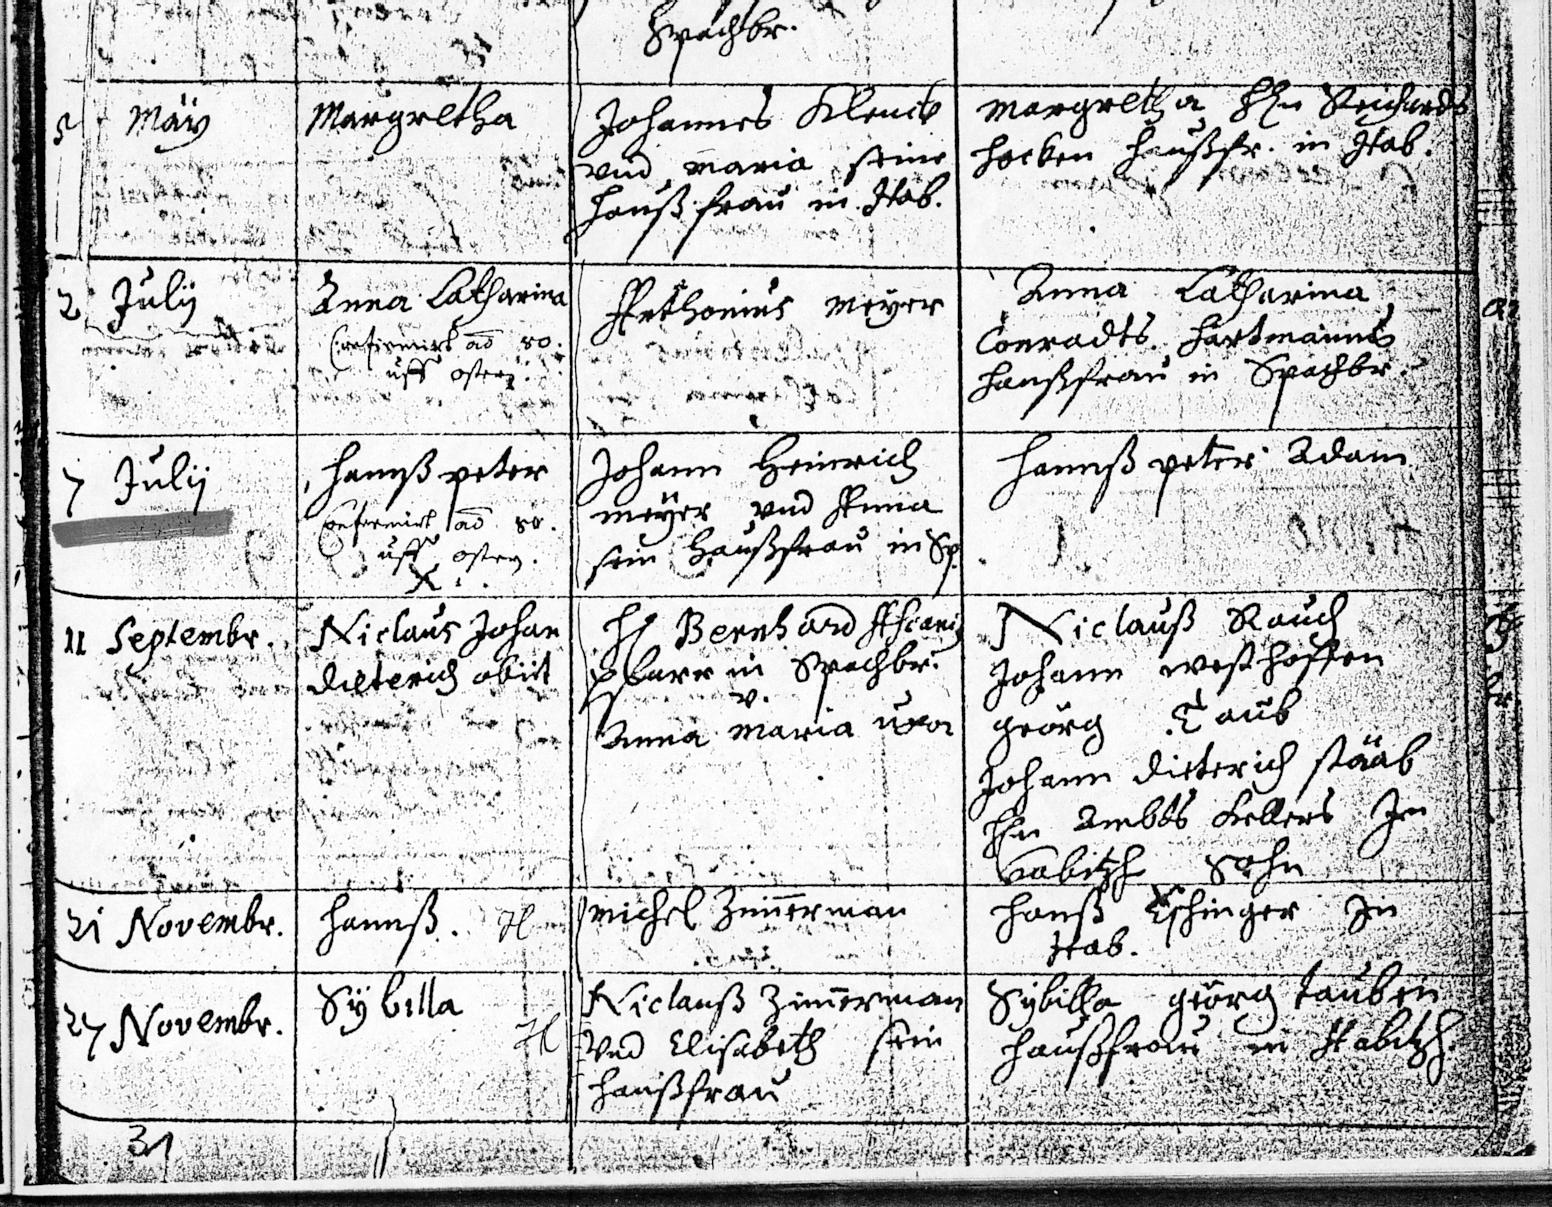 Spachbr.
5 Mäy
Margretha
Johannes Klenck
vnd maria seine
haußfrau in Hab.
Margretha Hn Reichardts
hocken haußfr. in Hab.
2 Julij
Anna Catharina
Confirmirt aō 80.
uff ostern.
Anthonius Meyer
Anna Catharina
Conradts hartmanns
haußfrau in Spachbr.
7 Julij
hannß peter
Confirmirt aō 80.
uff ostern.
X
Johann Heinrich
meÿer vnd Anna
sein Haußfrau in Sp.
hannß peter Adam
11 Septembr.
Niclaus Johan
dieterich obiit
H Bernhard
pfarr in Spachbr.
v.
Anna Maria uxor
Niclauß Rauch
Johann westhoffen
geörg Taub
Johann dieterich stääb
Hn Ambts Kellers In
habitzh Sohn
21 Novembr.
hannß. H
Michel Zim̄erman
hanß Eschinger In
Hab.
27 Novembr.
Sÿbilla
H
Niclauß Zim̄erman
vnd Elisabeth sein
haußfrau
Sybilla geörg tauben
haußfrau in Habitzh.
31